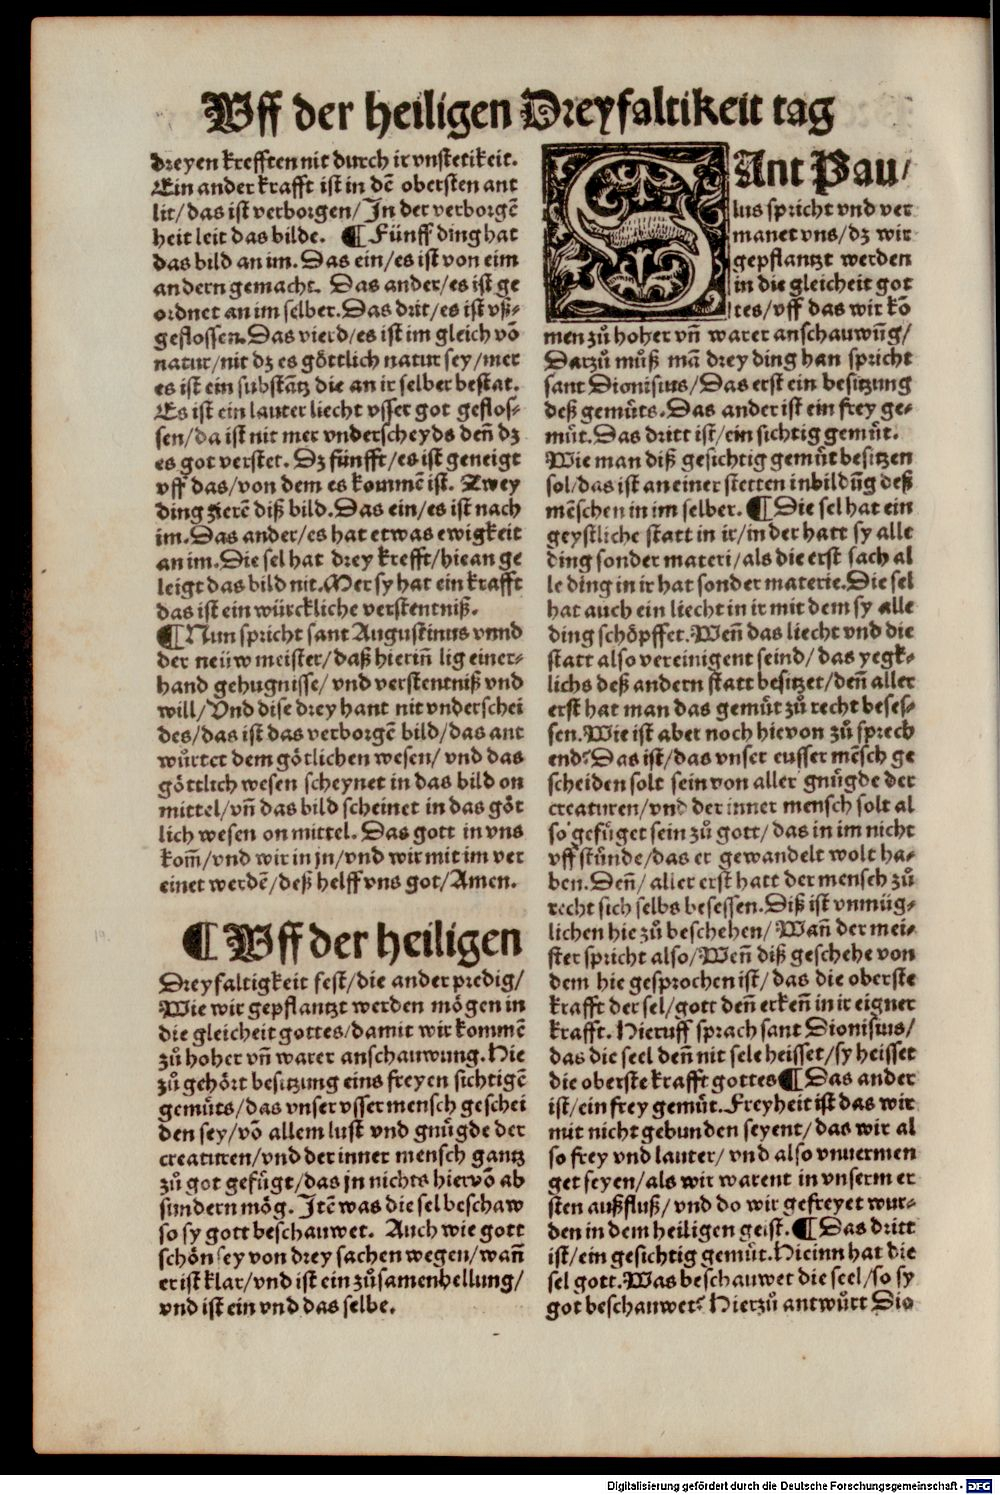 Vff der heiligen Dreyfaltikeit tag
dreyen krefften nit durch ir vnstetikeit.
Ein ander krafft ist in dē obersten ant
lit/das ist verborgen/In der verborgē
heit leit das bilde. ¶ Fünff ding hat
das bild an im. Das ein/es ist von eim
andern gemacht. Das ander/es ist ge
ordnet an im selber. Das drit/es ist vß⸗
geflossen. Das vierd/es ist im gleich vō
natur/nit dz es göttlich natur sey/mer
es ist ein substātz die an ir selber bestat.
Es ist ein lauter liecht vsser got geflos⸗
sen/da ist nit mer vnderscheyds deñ dz
es got verstet. Dz fünfft/es ist geneigt
vff das/von dem es kommē ist. Zwey
ding zierē diß bild. Das ein/es ist nach
im. Das ander/es hat etwas ewigkeit
an im. Die sel hat drey krefft/hie an ge
leigt das bild nit. Mer sy hat ein krafft
das ist ein würckliche verstentniß.
¶ Nun spricht sant Augustinus vnnd
der neüw meister/daß hieriñ lig einer⸗
hand gehugnisse/vnd verstentniß vnd
will/Vnd dise drey hant nit vnderschei
des/das ist das verborgē bild/das ant
wůrtet dem götlichen wesen/vnd das
göttlich wesen scheynet in das bild on
mittel/vñ das bild scheinet in das göt
lich wesen on mittel. Das gott in vns
kom̄/vnd wir in jn/vnd wir mit im ver
einet werdē/deß helff vns got/Amen.
¶ Vff der heiligen
Dreyfaltigkeit fest/die ander predig/
Wie wir gepflantzt werden mögen in
die gleicheit gottes/damit wir kommē
zů hoher vñ warer anschauwung. Hie
zů gehört besitzung eins freyen sichtigē
gemůts/das vnser vsser mensch geschei
den sey/vō allem lust vnd gnůgde der
creaturen/vnd der inner mensch gantz
zů got gefůgt/das jn nichts hiervō ab
sundern mög. Jtē was die sel beschaw
so sy gott beschauwet. Auch wie gott
schön sey von drey sachen wegen/wañ
er ist klar/vnd ist ein zůsamenhellung/
vnd ist ein vnd das selbe.
SAnt Pau/
lus spricht vnd ver
manet vns/dz wir
gepflantzt werden
in die gleicheit got
tes/vff das wir kō
men zů hoher vñ warer anschauwūg/
Darzů můß mā drey ding han spricht
sant Dionisius/Das erst ein besitzung
deß gemůts. Das ander ist ein frey ge⸗
můt. Das dritt ist/ein sichtig gemůt.
Wie man diß gesichtig gemůt besitzen
sol/das ist an einer stetten inbildūg deß
mēschen in im selber. ¶ Die sel hat ein
geystliche statt in ir/in der hatt sy alle
ding sonder materi/als die erst sach al
le ding in ir hat sonder materie. Die sel
hat auch ein liecht in ir mit dem sy alle
ding schöpffet. Weñ das liecht vnd die
statt also vereinigent seind/das yegk⸗
lichs deß andern statt besitzet/deñ aller
erst hat man das gemůt zů recht beses⸗
sen. Wie ist aber noch hievon zů sprech
end? Das ist/das vnser eusser mēsch ge
scheiden solt sein von aller gnůgde der
creaturen/vnd der inner mensch solt al
so gefůget sein zů gott/das in im nicht
vff stůnde/das er gewandelt wolt ha⸗
ben. Deñ/aller erst hatt der mensch zů
recht sich selbs besessen. Diß ist vnmüg⸗
lichen hie zů beschehen/Wañ der mei⸗
ster spricht also/Weñ diß geschehe von
dem hie gesprochen ist/das die oberste
krafft der sel/gott deñ erkeñ in ir eigner
krafft. Hieruff sprach sant Dionisius/
das die seel deñ nit sele heisset/sy heisset
die oberste krafft gottes ¶ Das ander
ist/ein frey gemůt. Freyheit ist das wir
mit nicht gebunden seyent/das wir al
so frey vnd lauter/vnd also vnuermen
get seyen/als wir warent in vnserm er
sten außfluß/vnd do wir gefreyet wur⸗
den in dem heiligen geist. ¶ Das dritt
ist/ein gesichtig gemůt. Hieinn hat die
sel gott. Was beschauwet die seel/so sy
got beschauwet? Hierzů antwůrt Dio
Digitalisierung gefördert durch die Deutsche Forschungsgemeinschaft - DFG